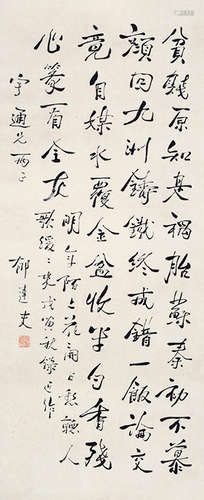 貧賤原知是禍胎蘇秦初不慕
顏回九洲鑄鐵終成錯一飯論交
竟自媒水覆金盆收半勺香殘
心篆看全灰
明年陌上花開日愁聽人
歌緩緩來戊寅秋錄近作
宇通兄兩正
郁達夫